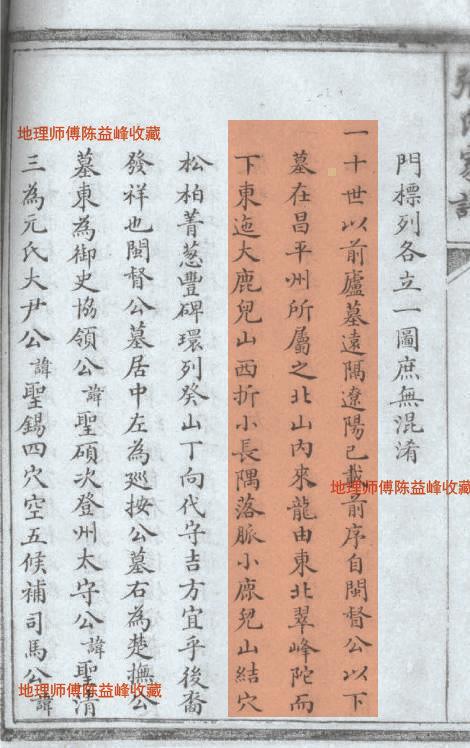 張氏家譜
門標列各立一圖庶無混淆
一十世以前廬墓遠隔遼陽已載前序自閩督公以下
墓在昌平州所屬之北山內來龍由東北翠峰陀而
下東迤大鹿兒山西折小長隅落脈小鹿兒山結穴
松柏菁蔥豐碑環列癸山丁向代守吉方宜乎後裔
發祥也閩督公墓居中左為巡按公墓右為楚撫公
墓東為御史協領公諱聖碩次登州太守公諱聖清
三為元氏大尹公諱聖錫四穴空五候補司馬公諱
地理師傅陳益峰收藏
地理師傅陳益峰收藏
地理師傅陳益峰收藏